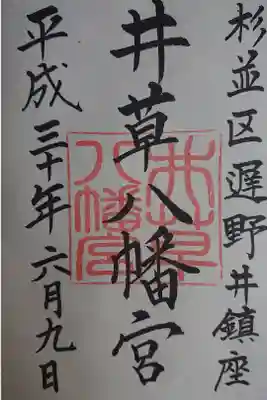 杉並区遅野井鎮座
井草八幡宮
平成三十年六月九日
井草八幡宮